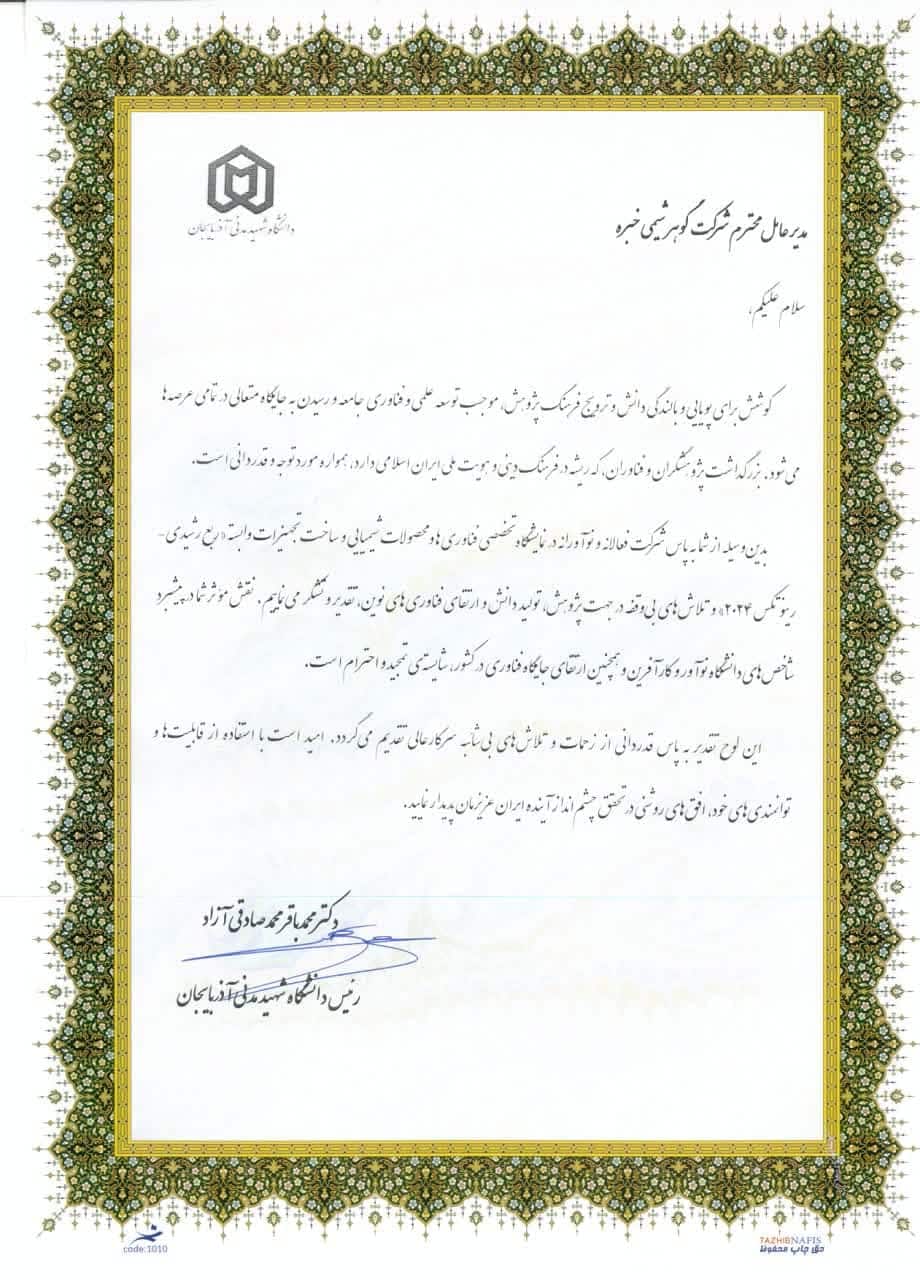 دانشگاه شهید مدنی آذربایجان
مدیر عامل محترم شرکت گوهر شیمی خبره
سلام علیکم،
کوشش برای پویایی و بالندگی دانش و ترویج فرهنگ پژوهش، موجب توسعه علمی و فناوری جامعه و رسیدن به جایگاه متعالی در تمامی عرصه ها
می شود. بزرگداشت پژوهشگران و فناوران، که ریشه در فرهنگ دینی و هویت ملی ایران اسلامی دارد، همواره مورد توجه و قدردانی است.
بدین وسیله از شما به پاس شرکت فعالانه و نوآورانه در نمایشگاه تخصصی فناوری ها و محصولات شیمیایی و ساخت تجهیزات وابسته «ربع رشیدی-
رینوتکس ۲۰۲۴» و تلاش های بی وقفه در جهت پژوهش، تولید دانش و ارتقای فناوری های نوین، تقدیر و تشکر می نماییم. نقش مؤثر شما در پیشبرد
شاخص های دانشگاه نوآور و کارآفرین و همچنین ارتقای جایگاه فناوری در کشور، شایسته ی تمجید و احترام است.
این لوح تقدیر به پاس قدردانی از زحمات و تلاش های بی شائبه سرکار عالی تقدیم می گردد. امید است با استفاده از قابلیت ها و
توانمندی های خود، افق های روشنی در تحقق چشم انداز آینده ایران عزیزمان پدیدار نمایید.
دکتر محمدباقر محمدصادقی آزاد
رئیس دانشگاه شهید مدنی آذربایجان
code:1010
TAZHIBNAFIS
حق چاپ محفوظ